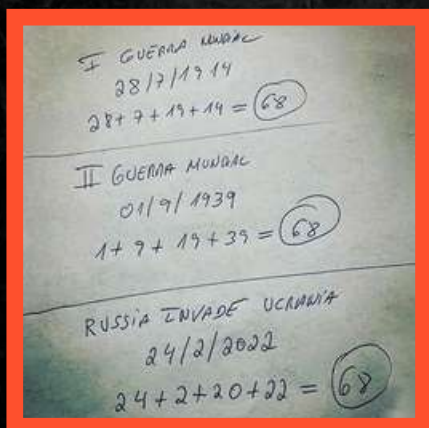 I GUERRA MUNDIAL
28/7/1914
28+7+19+14 = 68
II GUERRA MUNDIAL
01/9/1939
1+9+19+39 = 68
RUSSIA INVADE UCRANIA
24/2/2022
24+2+20+22 = 68